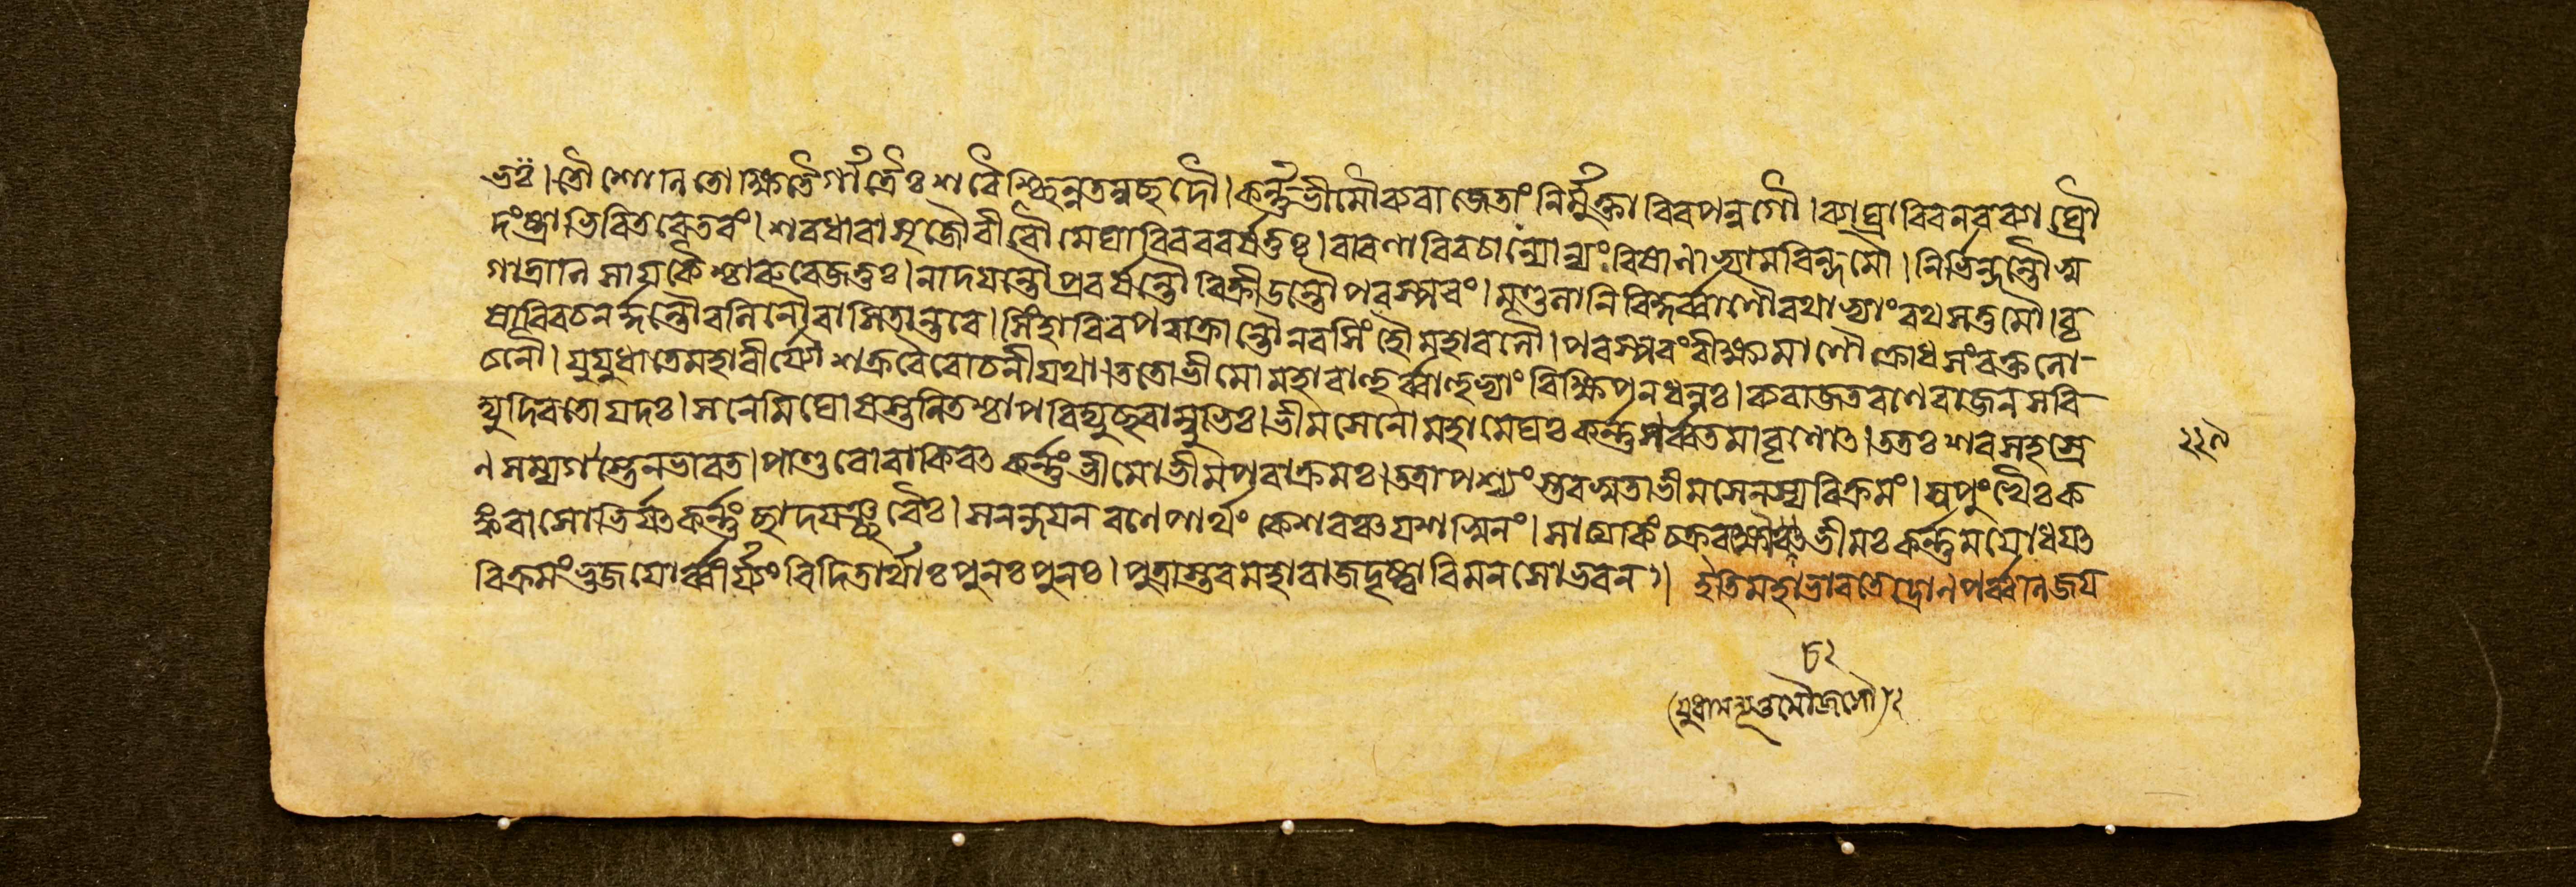 ভঃ। তৌ শোনিতোক্ষিতৈর্গাত্রৈঃ শরৈশ্ছিন্নতনুচ্ছদৌ। কর্ন্নভীমৌ ররাজেতাং নির্ম্মুক্তাবিব পন্নগৌ। ব্যাঘ্রাবিব নরব্যাঘ্রৌ
দংষ্ট্রাভিরিতরেতরং। শরধারাসৃজৌ বীরৌ মেঘাবিব ববর্ষতুঃ। বারণাবিব চান্যোন্যং বিষাণাভ্যামরিন্দমৌ। নির্ভিন্দন্তৌ স্ব
গাত্রানি সায়কৈশ্চারু রেজতুঃ। নাদয়ন্তৌ প্রবর্ষন্তৌ বিক্রীডন্তৌ পরস্পরং। মণ্ডলানি বিকুর্ব্বাণৌ রথাভ্যাং রথসত্তমৌ। বৃ
ষাবিব চ নর্দ্দন্তৌ বলিনৌ বাসিতান্তরে। সিংহাবিব পরাক্রান্তৌ নরসিংহৌ মহাবলৌ। পরস্পরং বীক্ষ্যমাণৌ ক্রোধসংরক্তলো-
চনৌ। যুযুধাতে মহাবীর্য্যৌ শক্রবৈরোচনী যথা। ততো ভীমো মহাবাহুর্ব্বাহুভ্যাং বিক্ষিপন্ ধনুঃ। ব্যরাজত রণে রাজন্ সবি-
দ্যুদিব তোয়দঃ। স নেমিঘোষস্তনিতশ্চাপবিদ্যুচ্ছরাম্বুভিঃ। ভীমসেনো মহামেঘঃ কর্ন্নপর্ব্বতমাবৃণোৎ। ততঃ শরসহস্রে
ণ সম্যগস্তেন ভারত। পাণ্ডবো ব্যকিরৎ কর্ন্নং ভীমো ভীমপরাক্রমঃ। তত্রাপশ্যংস্তব সুতা ভীমসেনস্য বিক্রমং। সুপুংখৈঃ ক
ঙ্কবাসোভির্য্যৎ কর্ন্নং ছাদয়ঞ্ছরৈঃ। স নন্দয়ন্ রণে পার্থং কেশবঞ্চ যশস্বিনং। সাত্যকিং চক্ররক্ষৌ চ ভীমঃ কর্ন্নমযোধয়ৎ
বিক্রমং ভুজয়োর্ব্বীর্য্যং বিদিতার্থাঃ পুনঃ পুনঃ। পুত্রাস্তব মহারাজ দৃষ্ট্বা বিমনসোভবন্॥ ইতি মহাভারতে দ্রোনপর্ব্বনি জয়
২২৯
৮২
(যুধামন্যূত্তমৌজসৌ)২